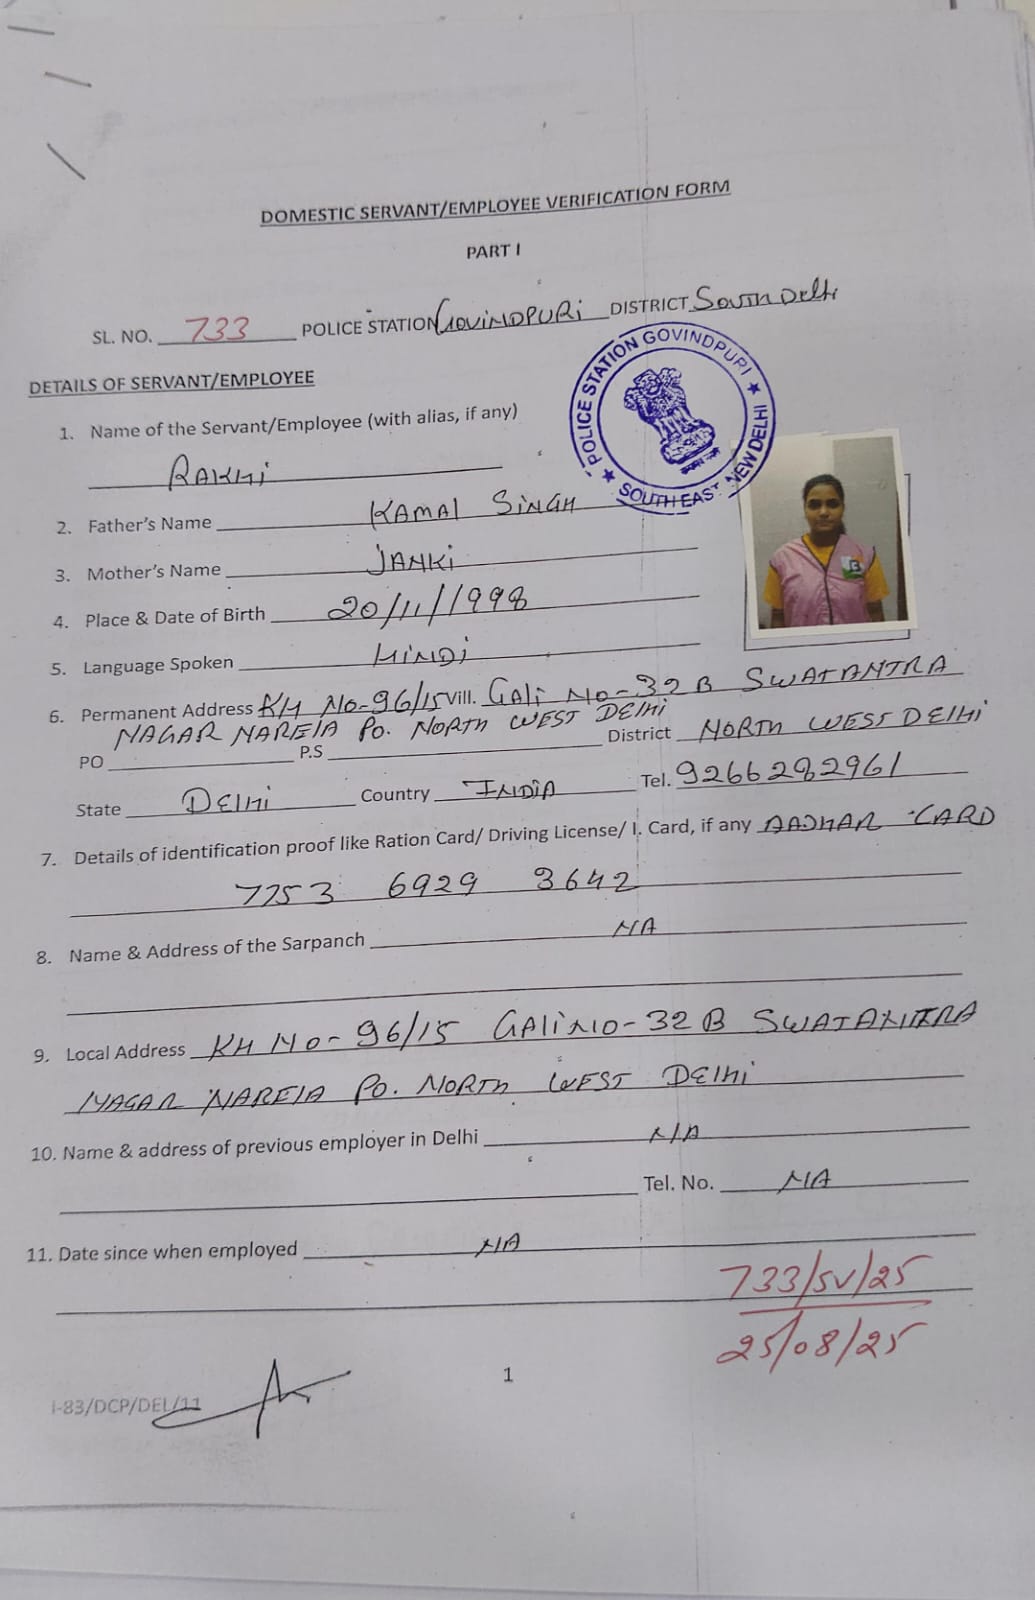 DOMESTIC SERVANT/EMPLOYEE VERIFICATION FORM
PART I
SL. NO. 733 POLICE STATION GOVINDPURI DISTRICT South Delhi
POLICE STATION GOVINDPURI ★ SOUTH EAST NEW DELHI ★
DETAILS OF SERVANT/EMPLOYEE
1. Name of the Servant/Employee (with alias, if any)
RAKHI
2. Father's Name KAMAL SINGH
3. Mother's Name JANKI
4. Place & Date of Birth 20/11/1998
5. Language Spoken HINDI
6. Permanent Address KH NO-96/15 Vill. GALI NO-32 B SWATANTRA
NAGAR NARELA PO. NORTH WEST DELHI
PO P.S District NORTH WEST DELHI
State DELHI Country INDIA Tel. 9266282961
7. Details of identification proof like Ration Card/ Driving License/ I. Card, if any AADHAR CARD
7753 6929 3642
8. Name & Address of the Sarpanch NA
9. Local Address KH NO-96/15 GALI NO-32 B SWATANTRA
NAGAR NARELA PO. NORTH WEST DELHI
10. Name & address of previous employer in Delhi N/A
Tel. No. NA
11. Date since when employed NA
733/SV/25
25/08/25
1
I-83/DCP/DEL/11